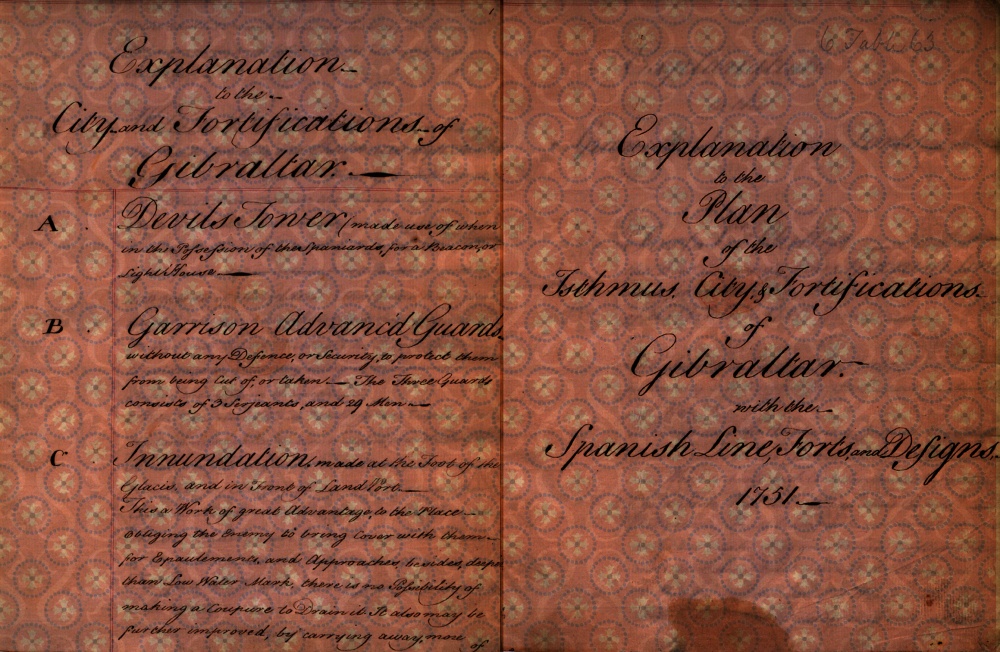 Explanation
to the
City and Fortifications of
Gibraltar.
A. Devils Tower (made use of when
in the Possession of the Spaniards, for a Beacon, or
Light House
B. Garrison Advanc'd Guards
without any Defence, or Security, to protect them
from being Cut of, or taken. The Three Guards
consists of 3 Serjeants, and 29 Men
C. Innundation, made at the Foot of the
Glacis, and in Front of Land Port
This a Work of great Advantage, to the Place
obliging the Enemy to bring Cover with them
for Epaulements, and Approaches, besides, deeper
than Low Water Mark, there is no Possibility of
making a Coupure to Drain it. It also may be
further improved, by carrying away, more
of
6 Tabl. 63
Explanation
to the
Plan
of the
Isthmus, City, & Fortifications
of
Gibraltar.
with the
Spanish Line, Forts and Designs
1751.